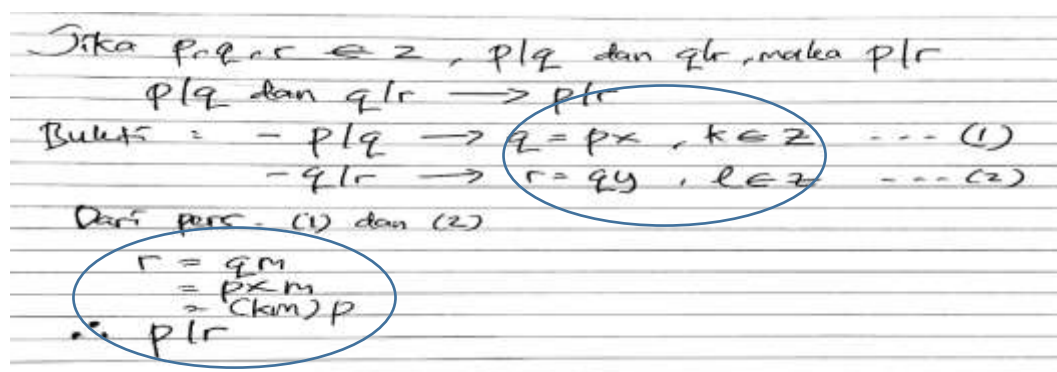 Jika p, q, r ∈ Z, p|q dan q|r, maka p|r
p|q dan q|r → p|r
Bukti : - p|q → q = px, k ∈ Z ... (1)
- q|r → r = qy, l ∈ Z ... (2)
Dari pers. (1) dan (2)
r = qm
= pxm
= (km) p
∴ p|r